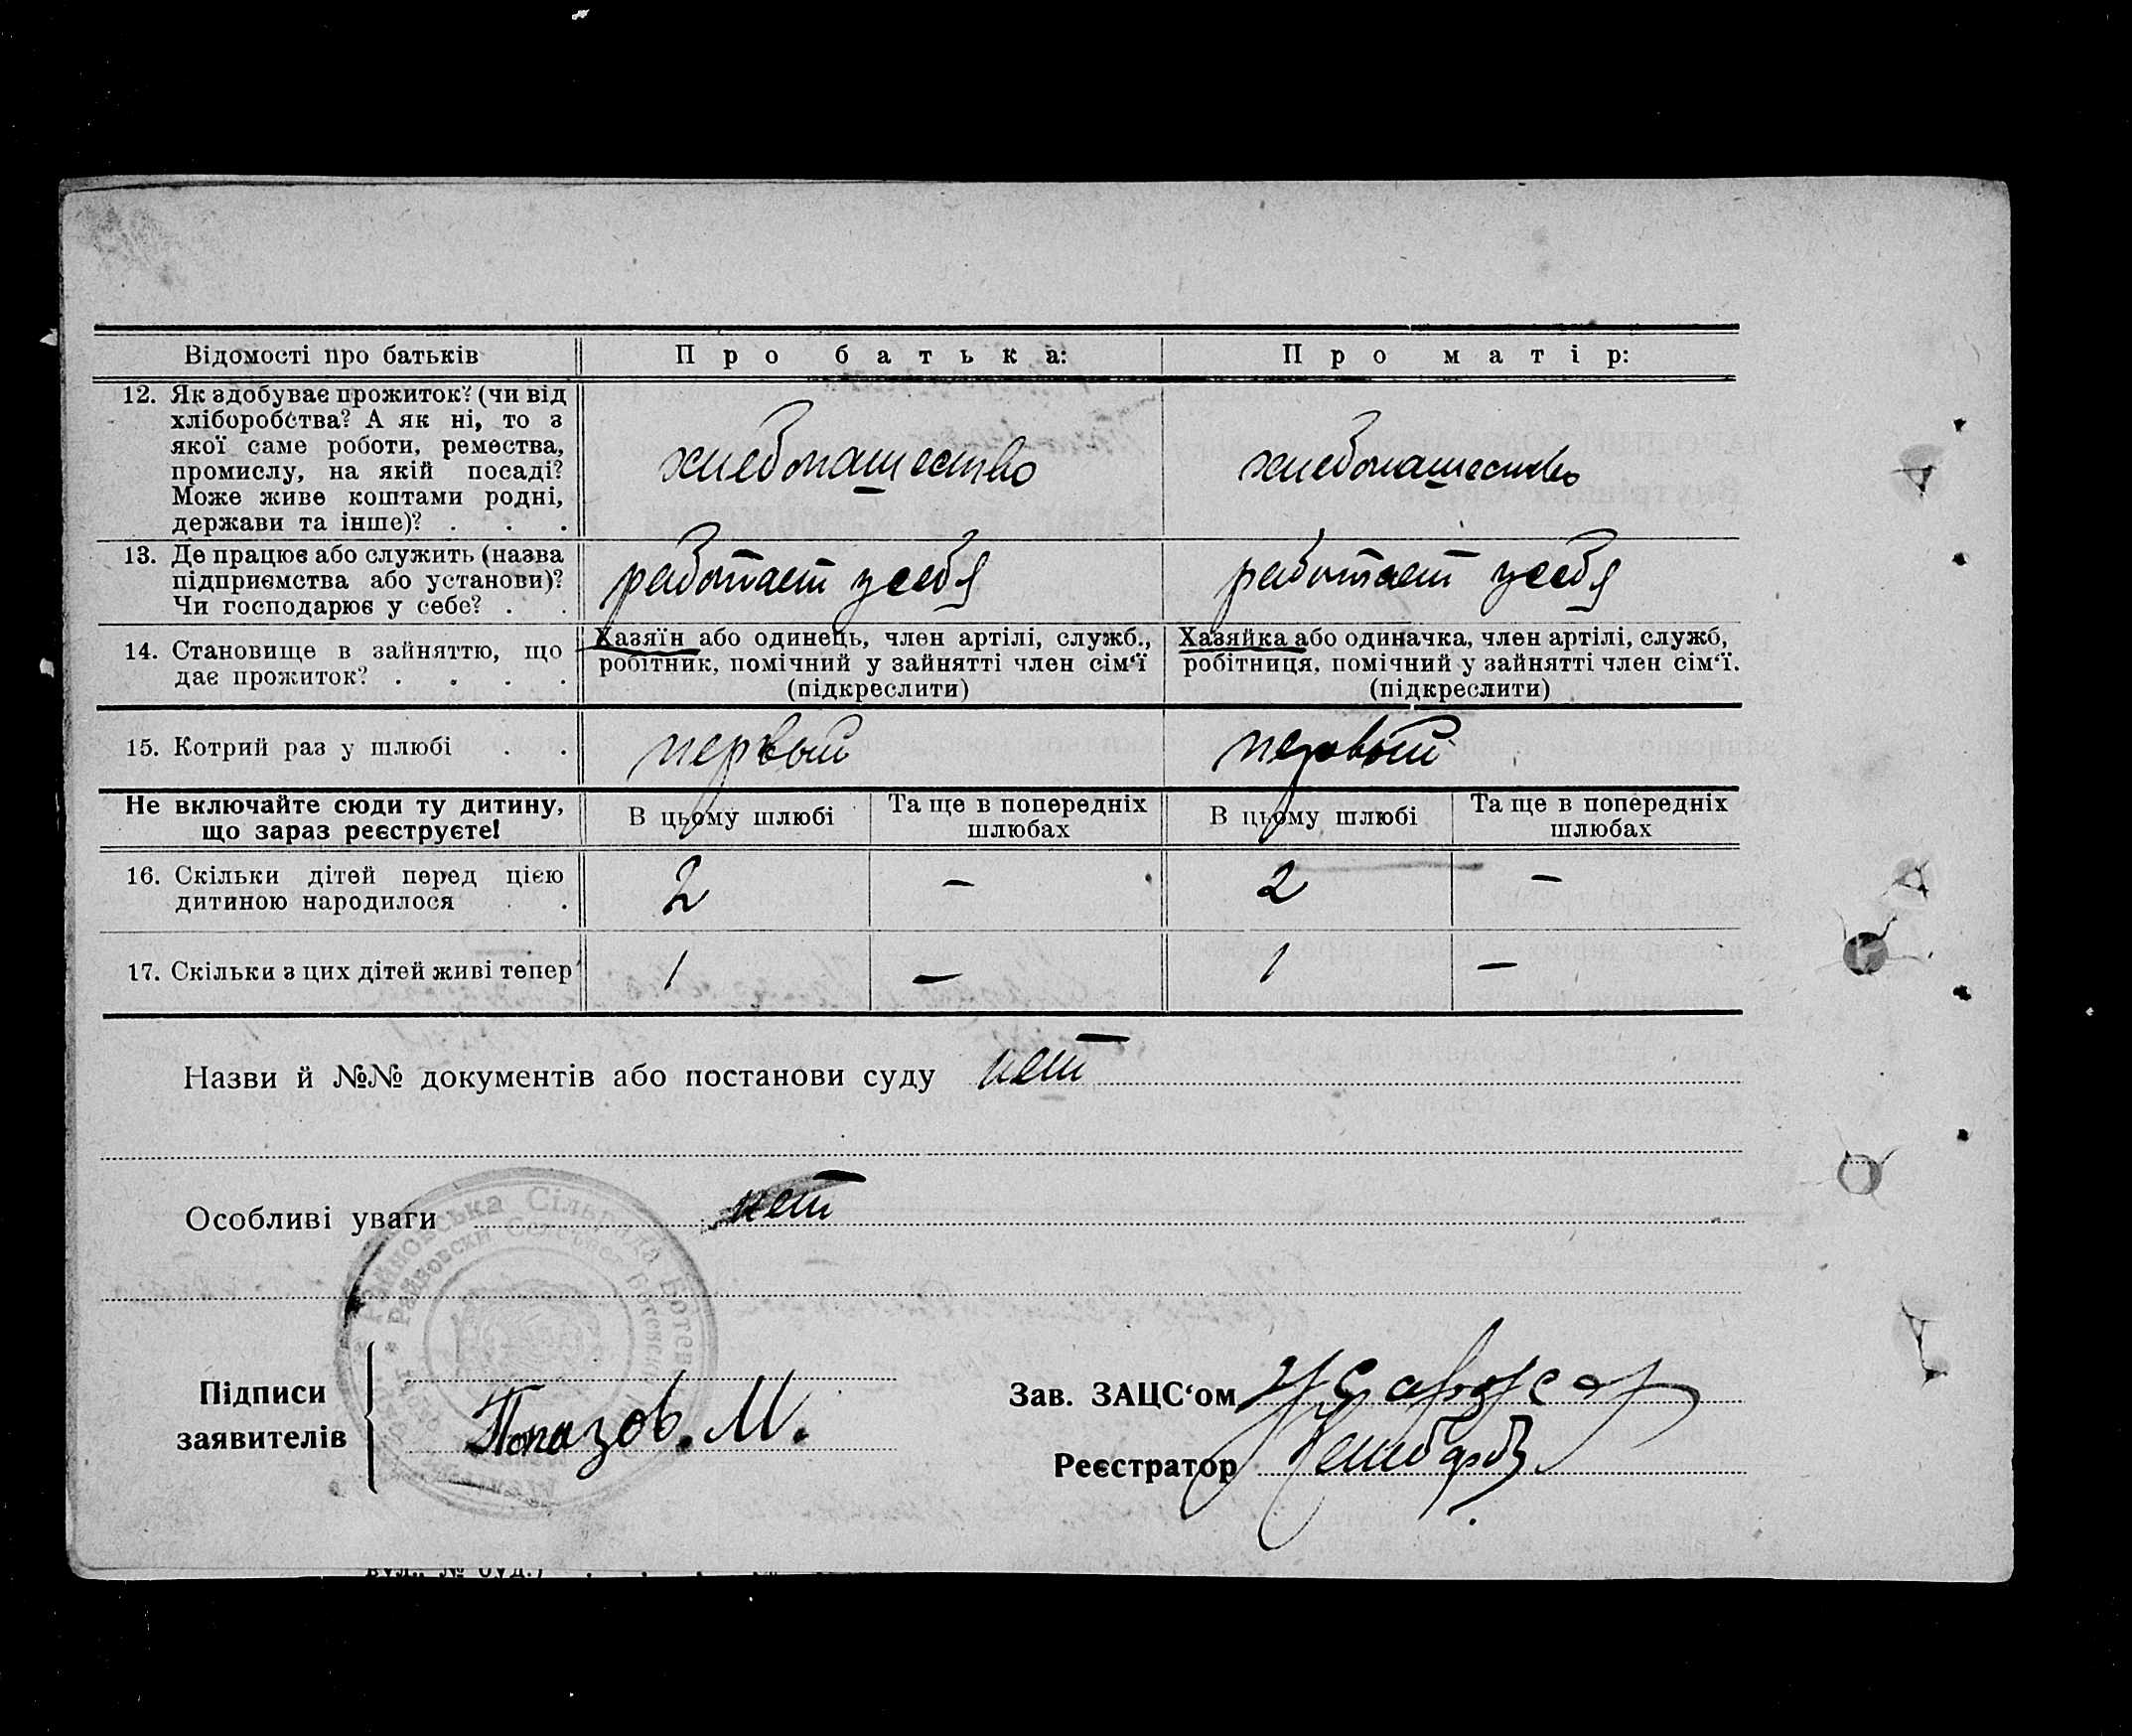 Відомості про батьків
Про батька:
Про матір:
12. Як здобуває прожиток? (чи від
хліборобства? А як ні, то з
якої саме роботи, ремества,
промислу, на якій посаді?
Може живе коштами родні,
держави та інше)? . . .
хлебопашество
хлебопашество
13. Де працює або служить (назва
підприємства або установи)?
Чи господарює у себе? . .
работает у себя
работает у себя
14. Становище в зайняттю, що
дає прожиток? . . . .
Хазяїн або одинець, член артілі, служб.,
робітник, помічний у зайнятті член сім‘ї
(підкреслити)
Хазяйка або одиначка, член артілі, служб,
робітниця, помічний у зайнятті член сім‘ї.
(підкреслити)
15. Котрий раз у шлюбі . .
первый
первый
Не включайте сюди ту дитину,
що зараз реєструєте!
В цьому шлюбі
Та ще в попередніх
шлюбах
В цьому шлюбі
Та ще в попередніх
шлюбах
16. Скільки дітей перед цією
дитиною народилося . .
2
—
2
—
17. Скільки з цих дітей живі тепер
1
—
1
—
Назви й №№ документів або постанови суду нет
Особливі уваги нет
Сільрада
Підписи
заявителів
М.
Зав. ЗАЦС‘ом
Реєстратор
вул., № буд.)